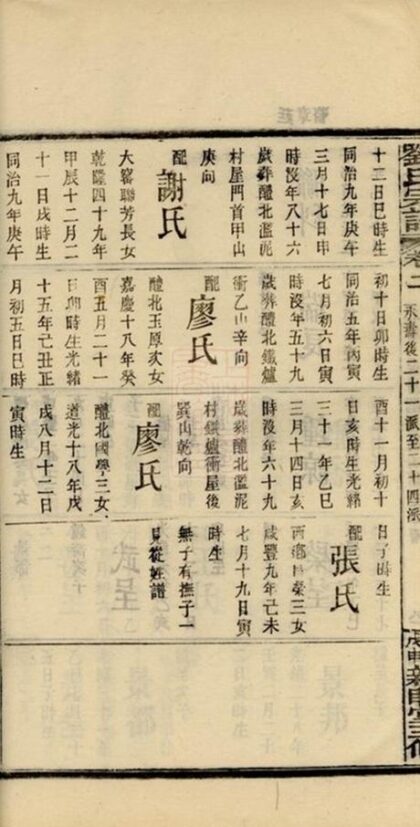 劉氏宗譜 卷二 永壽後二十一派至二十四派
十二日巳時生
同治九年庚午
三月十七日申
時沒年八十六
歲葬醴北濫泥
村屋門首甲山
庚向
配 謝氏
大寨聯芳長女
乾隆四十九年
甲辰十二月二
十一日戌時生
同治九年庚午
初十日卯時生
同治五年丙寅
七月初六日寅
時沒年五十九
歲葬醴北鐵爐
衝乙山辛向
配 廖氏
醴北玉原次女
嘉慶十八年癸
酉五月二十
日卯時生光緒
十五年己丑正
月初五日巳時
酉十一月初十
日亥時生光緒
三十一年乙巳
三月十四日亥
時沒年六十九
歲葬醴北濫泥
村鐵爐衝屋後
巽山乾向
配 廖氏
醴北國學三女
道光十八年戊
戌八月十二日
寅時生
日子時生
配 張氏
西鄉榮三女
咸豐九年己未
七月十九日寅
時生
無子有撫子一
見從姓譜